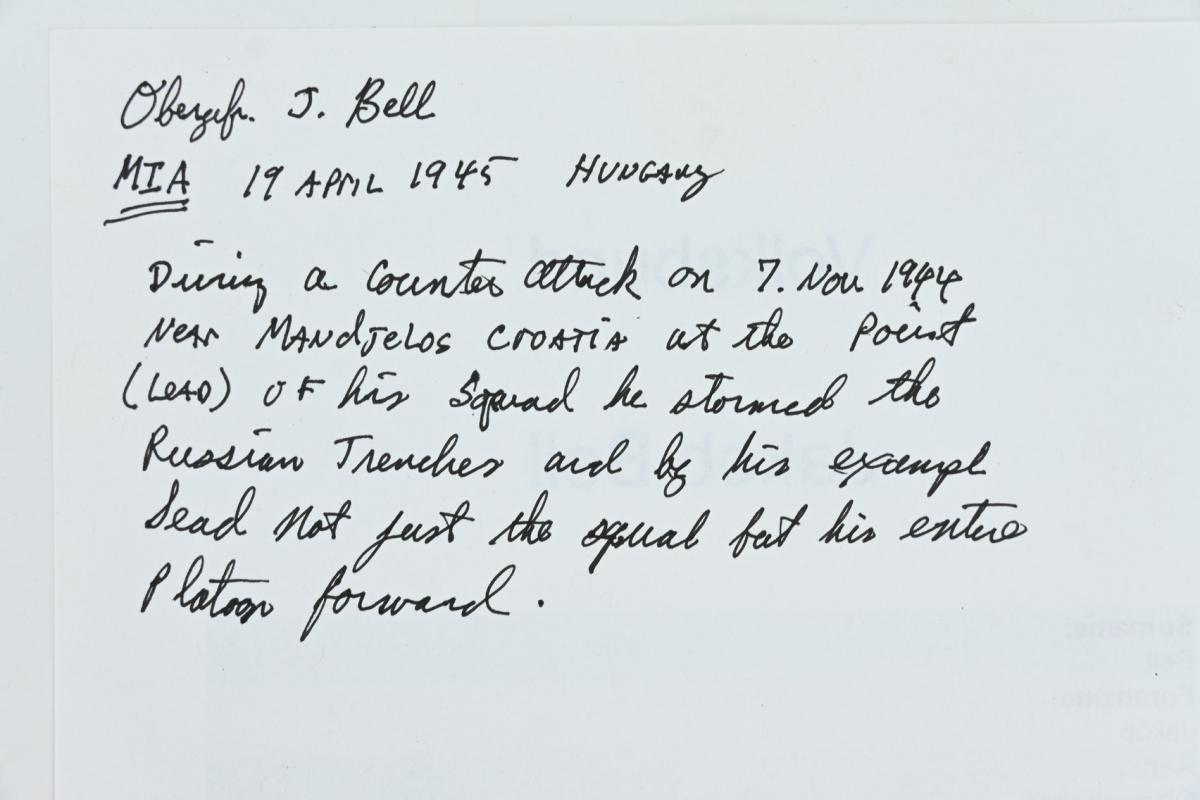 Obergefr. J. Bell
MIA 19 APRIL 1945 HUNGARY
During a Counter attack on 7. Nov 1944
Near MANdjeLos CROATIA at the Point
(LEAD) OF his Squad he stormed the
Russian Trenches and by his exampl
lead Not just the squad but his entire
Platoon forward.
Volksbund
Jakob Bell
Surname:
Bell
Forename:
Jakob